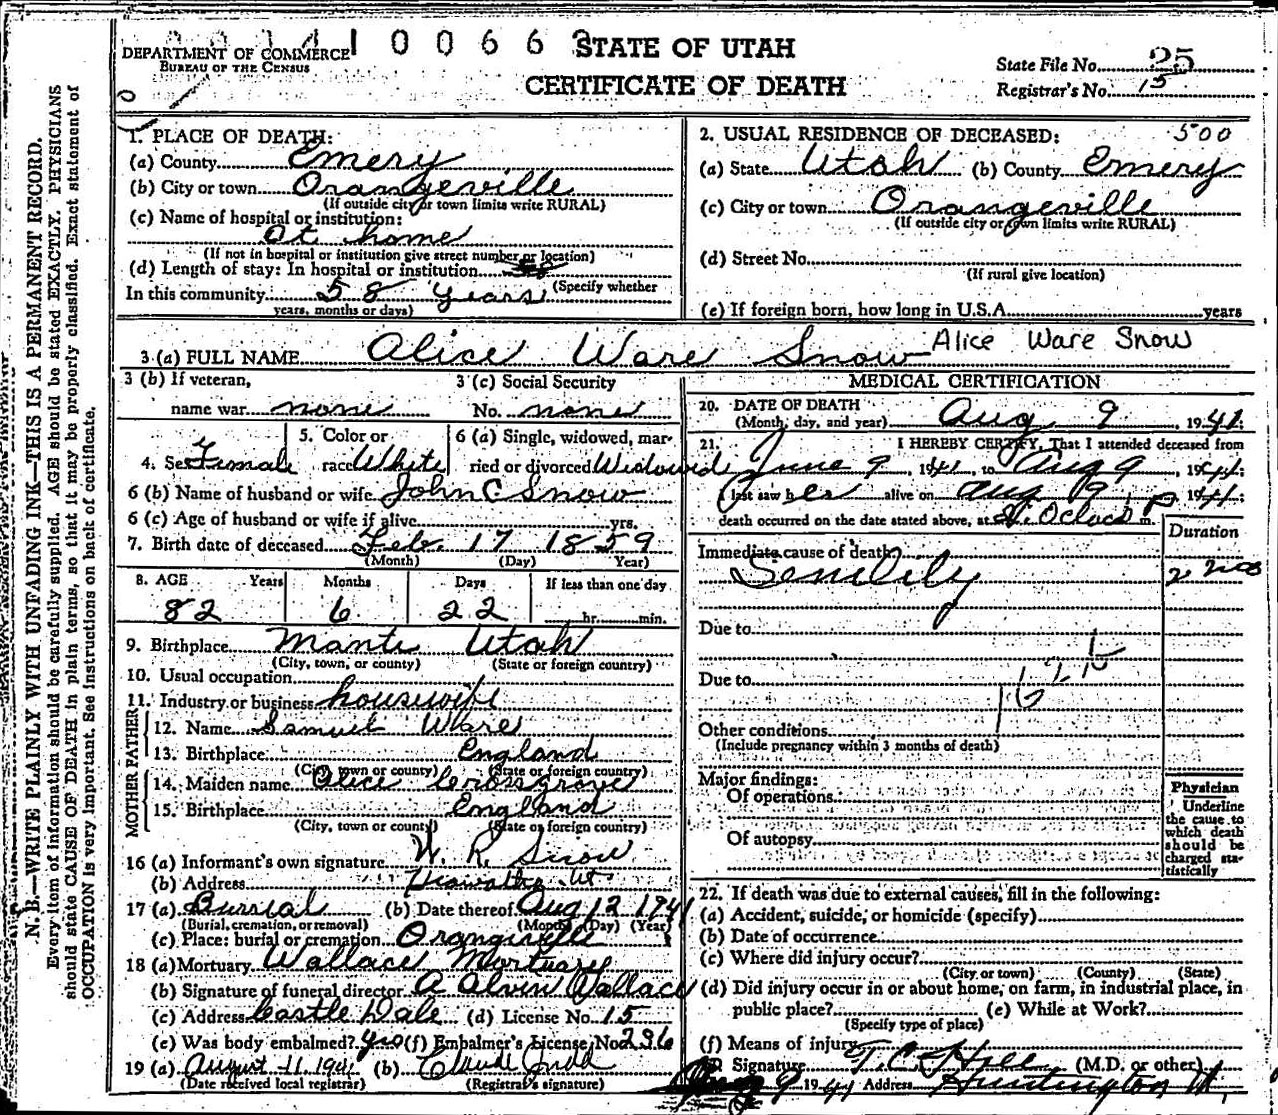 DEPARTMENT OF COMMERCE
BUREAU OF THE CENSUS
1 0 0 6 6
STATE OF UTAH
CERTIFICATE OF DEATH
State File No. 25
Registrar's No. 15
1. PLACE OF DEATH:
(a) County Emery
(b) City or town Orangeville
(If outside city or town limits write RURAL)
(c) Name of hospital or institution:
at home
(If not in hospital or institution give street number or location)
(d) Length of stay: In hospital or institution
In this community 58 years (Specify whether
years, months or days)
2. USUAL RESIDENCE OF DECEASED: 500
(a) State Utah (b) County Emery
(c) City or town Orangeville
(If outside city or town limits write RURAL)
(d) Street No.
(If rural give location)
(e) If foreign born, how long in U.S.A. years
3 (a) FULL NAME Alice Ware Snow Alice Ware Snow
3 (b) If veteran,
name war none
3 (c) Social Security
No. none
4. Sex Female
5. Color or
race White
6 (a) Single, widowed, mar-
ried or divorced Widowed
6 (b) Name of husband or wife John C Snow
6 (c) Age of husband or wife if alive yrs.
7. Birth date of deceased Feb. 17 1859
(Month) (Day) Year)
8. AGE Years Months Days If less than one day
82 6 22 hr. min.
9. Birthplace Manti Utah
(City, town, or county) (State or foreign country)
10. Usual occupation
11. Industry or business housewife
FATHER
12. Name Samuel Ware
13. Birthplace England
(City, town or county) (State or foreign country)
MOTHER
14. Maiden name Alice Crossgrove
15. Birthplace England
(City, town or county) (State or foreign country)
16 (a) Informant's own signature W. R. Snow
(b) Address Hiawatha Ut
17 (a) Burrial (b) Date thereof Aug 12 1941
(Burial, cremation, or removal) (Month) (Day) (Year)
(c) Place: burial or cremation Orangeville
18 (a) Mortuary Wallace Mortuary
(b) Signature of funeral director A Alvin Wallace
(c) Address Castle Dale (d) License No. 15
(e) Was body embalmed? yes (f) Embalmer's License No. 236
19 (a) August 11. 1941 (b) Claude Judd
(Date received local registrar) (Registrar's signature)
MEDICAL CERTIFICATION
20. DATE OF DEATH
(Month, day, and year) Aug 9, 1941
21. I HEREBY CERTIFY, That I attended deceased from
June 9, 1941, to Aug 9, 1941;
I last saw her alive on Aug 9, 1941;
death occurred on the date stated above, at Oclock P m.
Duration
Immediate cause of death
Senility 2 mos
Due to
Due to
Other conditions
(Include pregnancy within 3 months of death)
Major findings:
Of operations
Of autopsy
Physician
Underline
the cause to
which death
should be
charged sta-
tistically
22. If death was due to external causes, fill in the following:
(a) Accident, suicide, or homicide (specify)
(b) Date of occurrence
(c) Where did injury occur?
(City or town) (County) (State)
(d) Did injury occur in or about home, on farm, in industrial place, in
public place? (e) While at Work?
(Specify type of place)
(f) Means of injury
Signature T. C. Hill (M.D. or other)
Aug 9 1941 Address Huntington Ut,
N. B.—WRITE PLAINLY WITH UNFADING INK—THIS IS A PERMANENT RECORD.
Every item of information should be carefully supplied. AGE should be stated EXACTLY. PHYSICIANS
should state CAUSE OF DEATH in plain terms, so that it may be properly classified. Exact statement of
OCCUPATION is very important. See instructions on back of certificate.